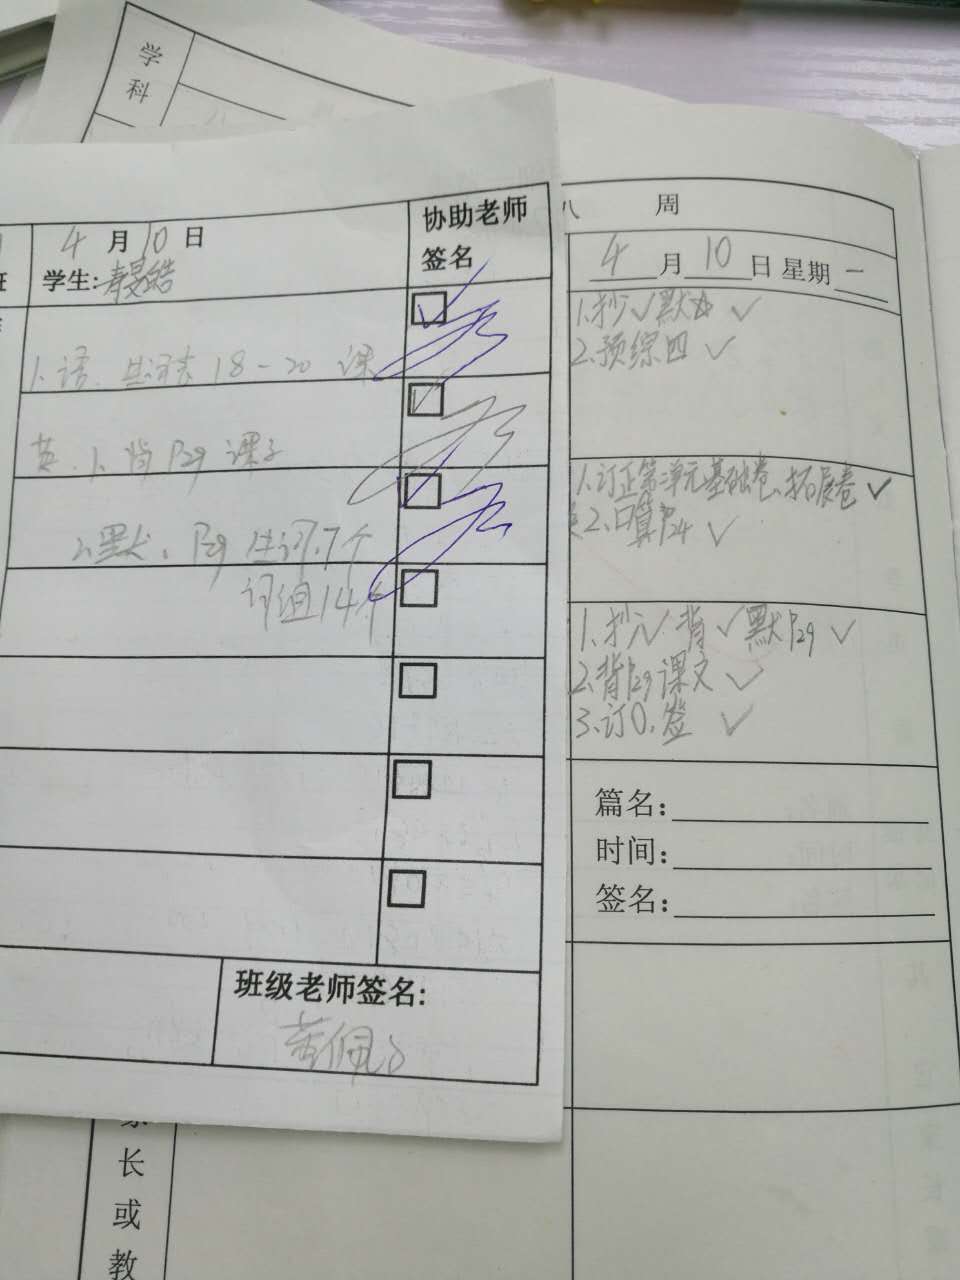 学
科
4月10日
学生:
协助老师
签名
1、语、生词表18-20课
英、1、背P29课文
2、默、P29生词7个
词组14个
班级老师签名:
黄佩
长
或
教
八 周
4月10日星期一
1.抄√默 √
2.预综四√
1.订正第二单元基础卷、拓展卷√
2.口算P24√
1.抄√背√默P29√
2.背P29课文√
3.订0.签√
篇名:
时间:
签名: